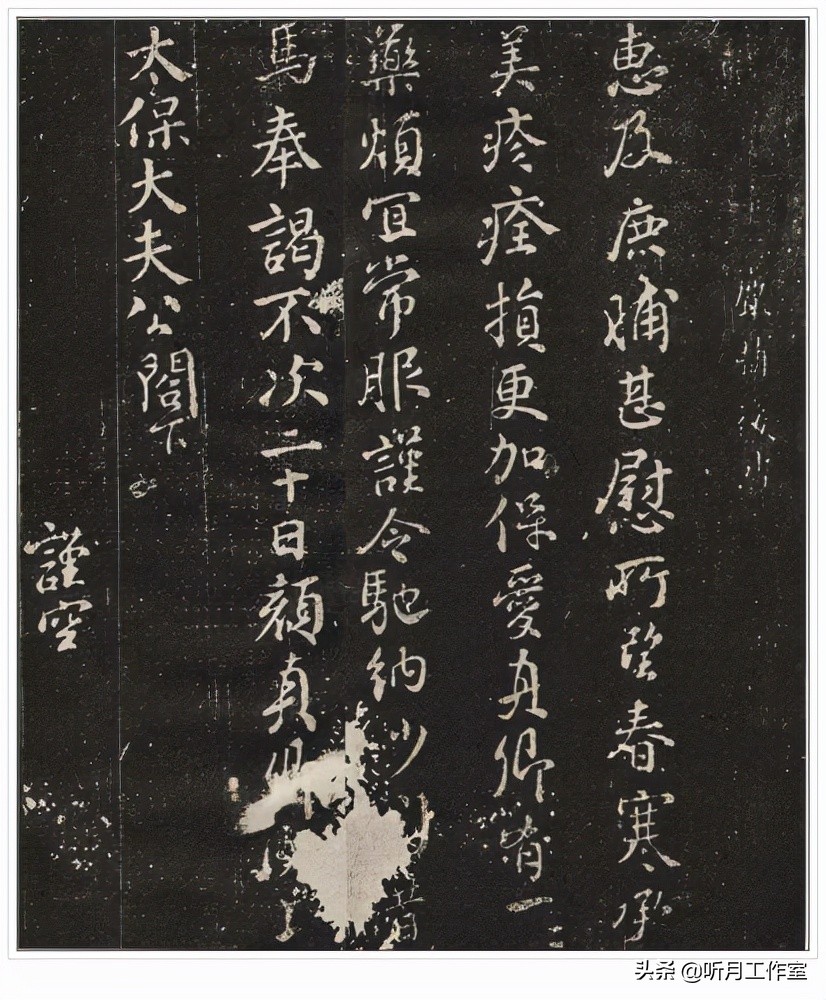 惠及鹿脯甚慰所望春寒承
美疹痊損更加保愛真卿有一二
藥煩宜常服謹令馳納少
馬奉謁不次二十日顏真卿
太保大夫公閤下
謹空
头条 @听月工作室